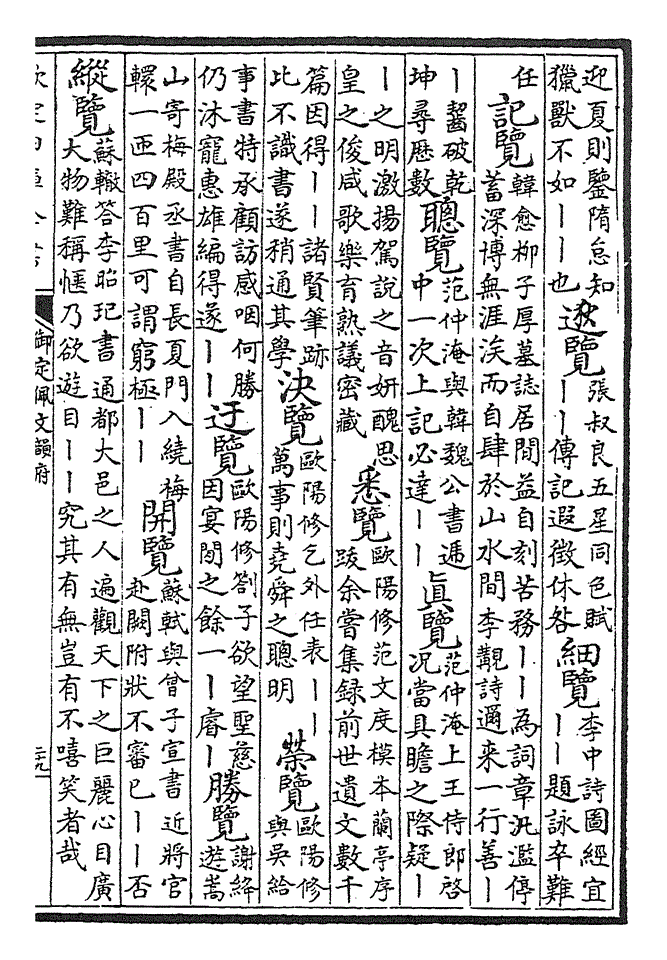 迎夏則鑒隋怠知
獵獸不如丨丨也
逖覽
張叔良五星同色賦
丨丨傳記遐徵休咎
細覽
李中詩圖經宜
丨丨題詠卒難
任
記覽
韓愈柳子厚墓誌居閒益自刻苦務丨丨為詞章汎濫停
蓄深博無涯涘而自肆於山水間李覯詩邇來一行善丨
丨齧破乾
坤尋歴數
聰覽
范仲淹與韓魏公書遞
中一次上記必達丨丨
真覽
范仲淹上王侍郎啓
況當具瞻之際疑丨
丨之明激揚駕說之音妍醜思
皇之俊咸歌樂育熟議密藏
悉覽
歐陽修范文度模本蘭亭序
跋余嘗集録前世遺文數千
篇因得丨丨諸賢筆跡
比不識書遂稍通其學
決覽
歐陽修乞外任表丨丨
萬事則堯舜之聰明
榮覽
歐陽修
與吳給
事書特承顧訪感咽何勝
仍沐寵惠雄編得遂丨丨
迂覽
歐陽修劄子欲望聖慈
因宴閒之餘一丨睿丨
勝覽
謝絳
遊嵩
山寄梅殿丞書自長夏門入繞梅
轘一匝四百里可謂窮極丨丨
開覽
蘇軾與曾子宣書近將官
赴闕附狀不審已丨丨否
縱覽
蘇轍答李昭玘書通都大邑之人遍觀天下之巨麗心目廣
大物難稱愜乃欲遊目丨丨究其有無豈有不嘻笑者哉
欽定四庫全書
御定佩文韻府
二九